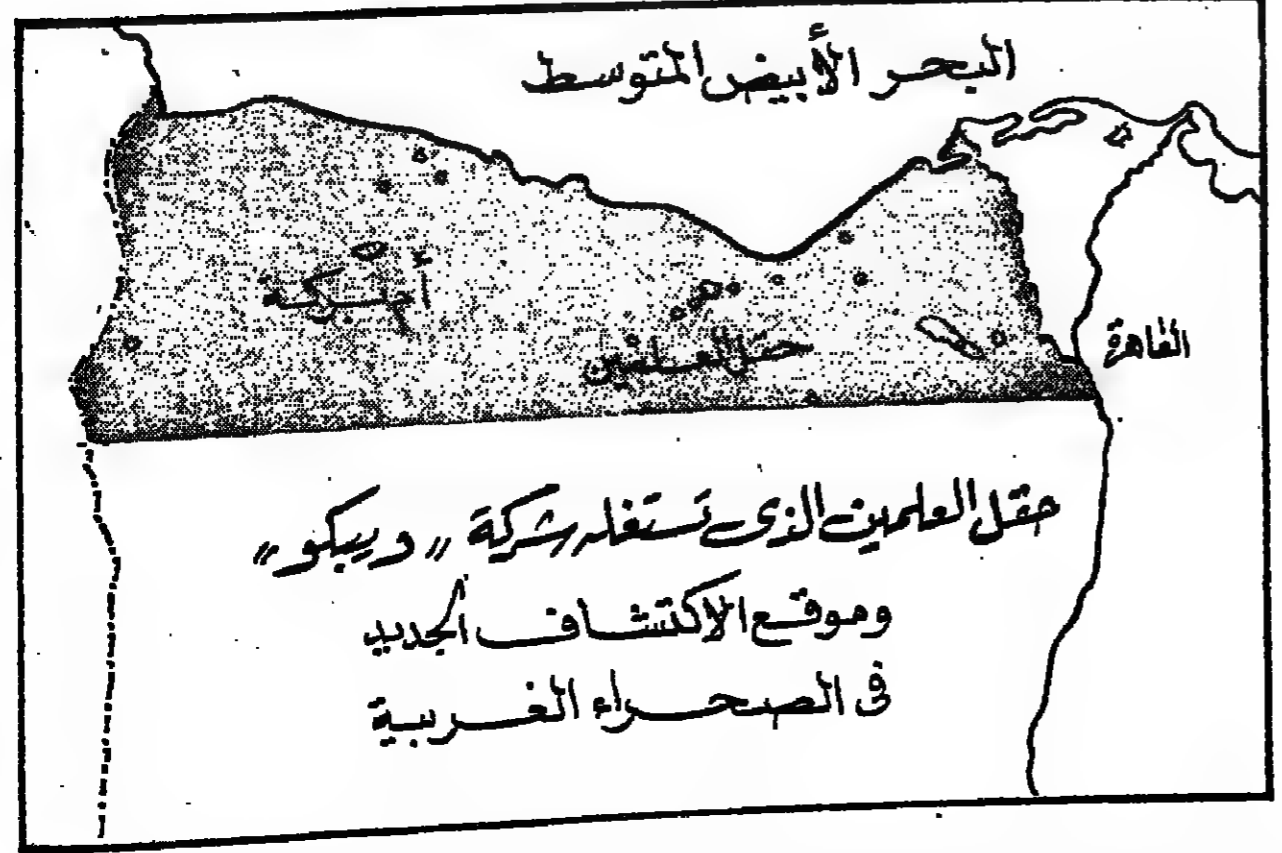 البحر الأبيض المتوسط
القاهرة
حقل العلمين
حقل العلمين الذى تستغله شركة «ويبكو»
وموقع الإكتشاف الجديد
فى الصحراء الغربية